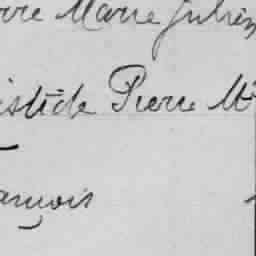 rre Marie Julien
istide Pierre M
ançois